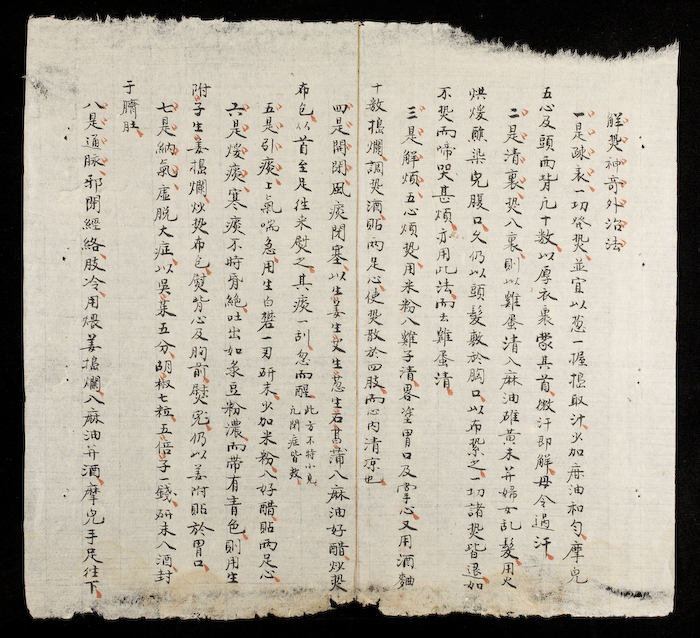 解熨神奇外治法
一是疎表一切發熨並宜以葱一握搗取汁少加麻油和匀摩児
五心及頭面背几十数以厚衣裹蒙其首微汗即解毋令過汗
二是清裏熨入裏則以雞蛋清入麻油雄黄末并婦女乱髮用火
烘煖蘸染児腹口久仍以頭髮敷於胸口以布縏之一切諸熨皆退如
不熨而啼哭甚煩亦用此法而去雞蛋清
三是解煩五心煩熨用米粉入雞子清畧塗胃口及掌心又用酒麯
十数搗爛調熨酒貼两足心使熨散於四肢而心内清凉也
四是開閉風痰閉塞以生姜生生葱生石菖蒲入麻油好醋炒熨
布包从首至足往来熨之其痰一刮忽而醒此方不特小児
凢閉症皆效
五是引痰上氣喘急用生白礬一刃研末少加米粉入好醋貼两足心
六是煖痰寒痰不時昏絶吐出如菉豆粉濃而帶有青色則用生
附子生姜搗爛炒熨布包熨背心及胸前熨完仍以姜附貼於胃口
七是納氣虚脱大症以吳茱五分胡椒七粒五倍子一錢研末入酒封
于臍肚
八是通脉邪閉經絡肢冷用煨姜搗爛入麻油并酒摩児手足往下